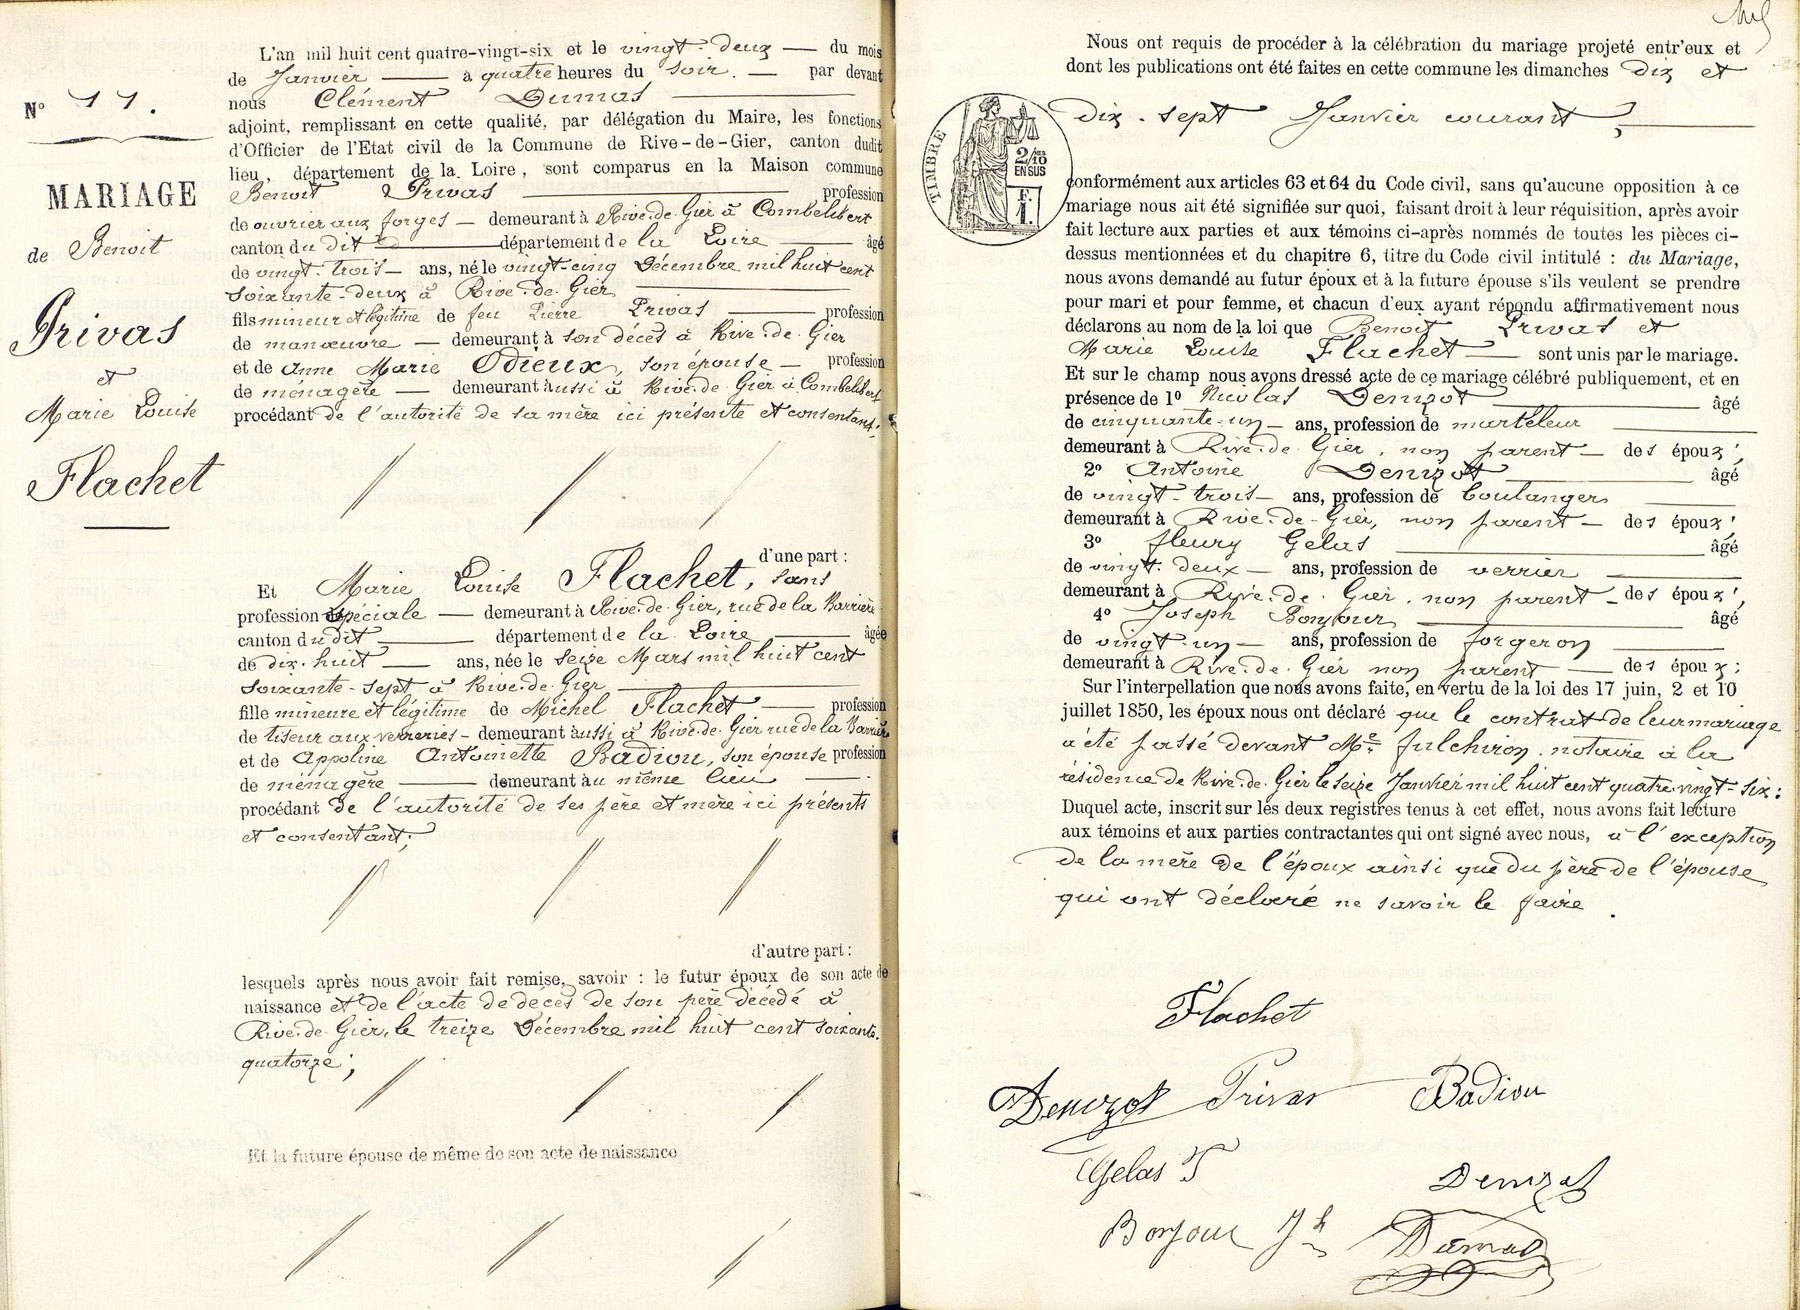 N° 11.
MARIAGE
de Benoit
Privas
et
Marie Louise
Flachet
L'an mil huit cent quatre-vingt-six et le vingt-deux — du mois
de Janvier — à quatre heures du soir. — par devant
nous Clément Dumas
adjoint, remplissant en cette qualité, par délégation du Maire, les fonctions
d'Officier de l'Etat civil de la Commune de Rive-de-Gier, canton dudit
lieu, département de la Loire, sont comparus en la Maison commune
Benoit Privas — profession
de ouvrier aux forges — demeurant à Rive-de-Gier à Combelibert
canton du dit — département de la Loire — âgé
de vingt-trois — ans, né le vingt-cinq Décembre mil huit cent
soixante-deux à Rive-de-Gier
fils mineur et légitime de feu Pierre Privas — profession
de manœuvre — demeurant à son décès à Rive-de-Gier
et de Anne Marie Odieux, son épouse — profession
de ménagère — demeurant aussi à Rive-de-Gier à Combelibert
procédant de l'autorité de sa mère ici présente et consentant;
d'une part :
Et Marie Louise Flachet, sans
profession spéciale — demeurant à Rive-de-Gier, rue de la Barrière
canton du dit — département de la Loire — âgée
de dix-huit — ans, née le seize Mars mil huit cent
soixante-sept à Rive-de-Gier
fille mineure et légitime de Michel Flachet — profession
de tiseur aux verreries — demeurant aussi à Rive-de-Gier rue de la Barrière
et de Appoline Antoinette Badiou, son épouse profession
de ménagère — demeurant au même lieu — .
procédant de l'autorité de ses père et mère ici présents
et consentant;
d'autre part :
lesquels après nous avoir fait remise, savoir : le futur époux de son acte de
naissance et de l'acte de décès de son père décédé à
Rive-de-Gier, le treize Décembre mil huit cent soixante-
quatorze;
Et la future épouse de même de son acte de naissance
Nous ont requis de procéder à la célébration du mariage projeté entr'eux et
dont les publications ont été faites en cette commune les dimanches dix et
dix-sept Janvier courant,
TIMBRE
2/10 EN SUS
F. 1.
conformément aux articles 63 et 64 du Code civil, sans qu'aucune opposition à ce
mariage nous ait été signifiée sur quoi, faisant droit à leur réquisition, après avoir
fait lecture aux parties et aux témoins ci-après nommés de toutes les pièces ci-
dessus mentionnées et du chapitre 6, titre du Code civil intitulé : du Mariage,
nous avons demandé au futur époux et à la future épouse s'ils veulent se prendre
pour mari et pour femme, et chacun d'eux ayant répondu affirmativement nous
déclarons au nom de la loi que Benoit Privas et
Marie Louise Flachet — sont unis par le mariage.
Et sur le champ nous avons dressé acte de ce mariage célébré publiquement, et en
présence de 1° Nicolas Denizot — âgé
de cinquante-un — ans, profession de marteleur
demeurant à Rive-de-Gier, non parent — des époux;
2° Antoine Denizot — âgé
de vingt-trois — ans, profession de boulanger
demeurant à Rive-de-Gier, non parent — des époux;
3° fleury Gelas — âgé
de vingt-deux — ans, profession de verrier
demeurant à Rive-de-Gier, non parent — des époux;
4° Joseph Bonjour — âgé
de vingt-un — ans, profession de forgeron
demeurant à Rive-de-Gier non parent — des époux;
Sur l'interpellation que nous avons faite, en vertu de la loi des 17 juin, 2 et 10
juillet 1850, les époux nous ont déclaré que le contrat de leur mariage
a été passé devant Me fulchiron, notaire à la
résidence de Rive-de-Gier le seize Janvier mil huit cent quatre-vingt-six;
Duquel acte, inscrit sur les deux registres tenus à cet effet, nous avons fait lecture
aux témoins et aux parties contractantes qui ont signé avec nous, à l'exception
de la mère de l'époux ainsi que du père de l'épouse
qui ont déclaré ne savoir le faire.
Flachet
Denizot Privas Badiou
Gelas F
Denizot
Bonjour Jh
Dumas